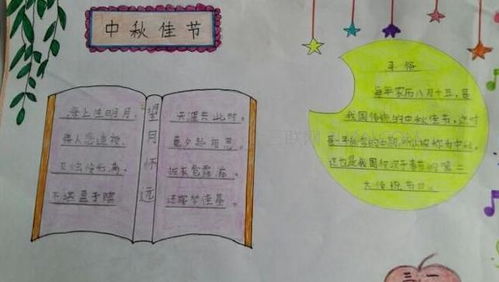 中秋佳节
望月怀远
海上生明月，
情人怨遥夜
灭烛怜光满，
不堪盈手赠
天涯共此时。
竟夕起相思。
披衣觉露滋。
还寝梦佳期。
俗
每年农历八月十五，是
我国传统的中秋佳节。这时
是一年秋季的中期，所以被称为中秋。
这也是我国仅次于春节的第二
大传统节日。